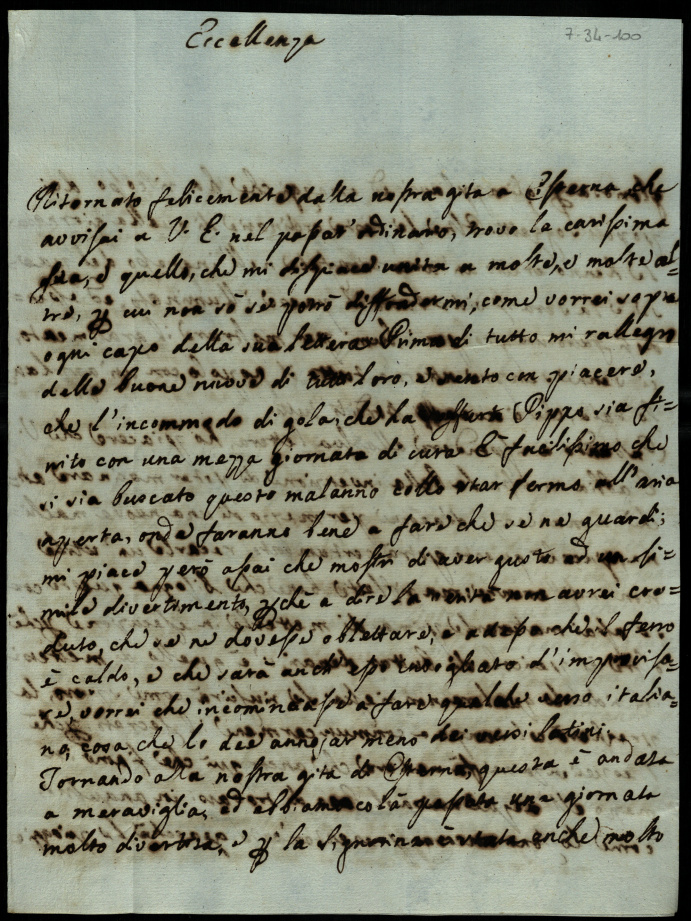 Eccellenza
7-34-100
Ritornato felicemente dalla nostra gita a Esterna che
avvisai a V. E. nel passat' ordinario, trovo la carissima
sua, e quello, che mi dispiace unita a molte, e molte al=
tre, p cui non sò se potrò diffondermi, come vorrei sopra
ogni capo della sua lettera. Prima di tutto mi rallegro
delle buone nuove di tutti loro, e sento con piacere,
che l'incommodo di gola, che ha sofferto Pippo sia fi=
nito con una mezza giornata di cura. È facilissimo che
si sia buscato questo malanno collo star fermo all'aria
aperta, onde faranno bene a fare che se ne guardi;
mi piace però assai che mostri di aver gusto ad un si=
mile divertimento, pchè a dire la verità non avrei cre=
duto, che se ne dovesse oblettare, e adesso che il ferro
è caldo, e che sarà anch'esso invogliato d'improvisa=
re, vorrei che incominciasse a fare qualche verso italia=
no, cosa che lo dee annojar meno de versi latini.
Tornando alla nostra gita di Esterna, questa è andata
a meraviglia, ed abbiamo colà passata una giornata
molto divertita, e p la Signorina è stata anche molto